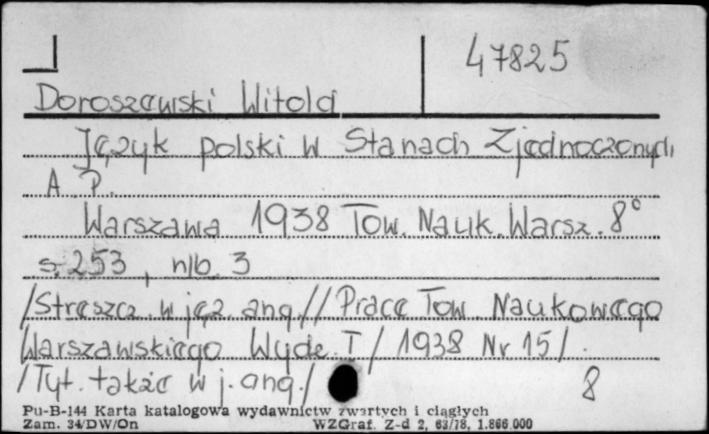 47825
Doroszewski Witold
Język polski w Stanach Zjednoczonych
A. P.
Warszawa 1938 Tow. Nauk. Warsz. 8°
s. 253, nlb. 3
/Streszcz. w jęz. ang.// Prace Tow. Naukowego
Warszawskiego Wydz. I / 1938 Nr 15/.
/Tyt. także w j. ang./ 8
Pu-B-144 Karta katalogowa wydawnictw zwartych i ciągłych
Zam. 34/DW/On WZGraf. Z-d 2, 63/78, 1.866.000